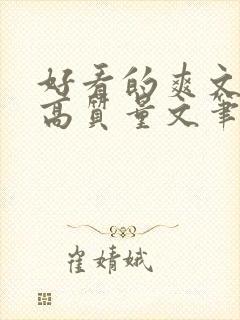 好看的爽文
高质量文笔
崔婧娥